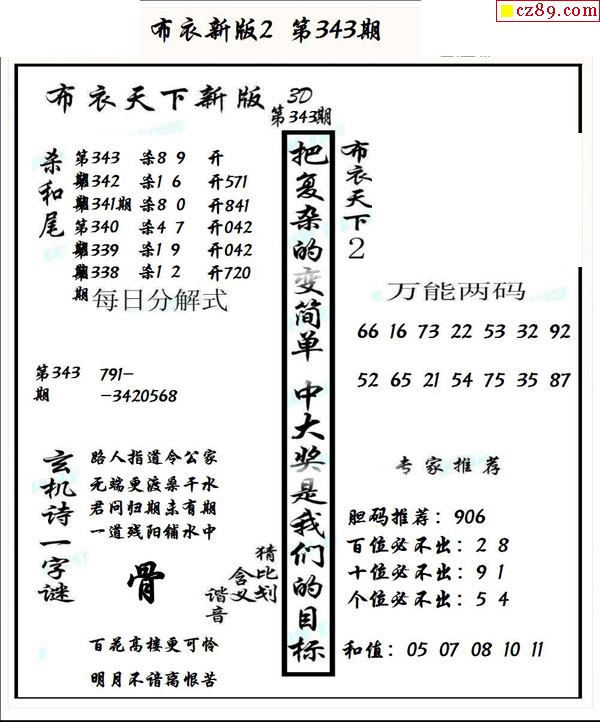 cz89.com
布衣新版2 第343期
布衣天下新版 3D
第343期
杀和尾
第343期 杀89 开
第342期 杀16 开571
第341期 杀80 开841
第340期 杀47 开042
第339期 杀19 开042
第338期 杀12 开720
每日分解式
第343期 791-
-3420568
玄机诗一字谜
路人指道令公家
无端更渡桑干水
君问归期未有期
一道残阳铺水中
骨
猜比划
含义
谐音
百花高楼更可怜
明月不谙离恨苦
把复杂的变简单 中大奖是我们的目标
布衣天下2
万能两码
66 16 73 22 53 32 92
52 65 21 54 75 35 87
专家推荐
胆码推荐：906
百位必不出：2 8
十位必不出：9 1
个位必不出：5 4
和值：05 07 08 10 11